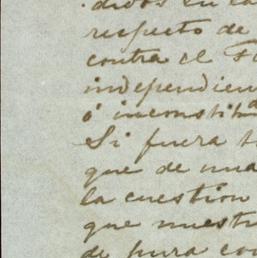 ·didos en la
respeto de
contra el F
independien
ó inconstitu
Si fuera t
que de nua
la cuestion
que nuestr
de pura con